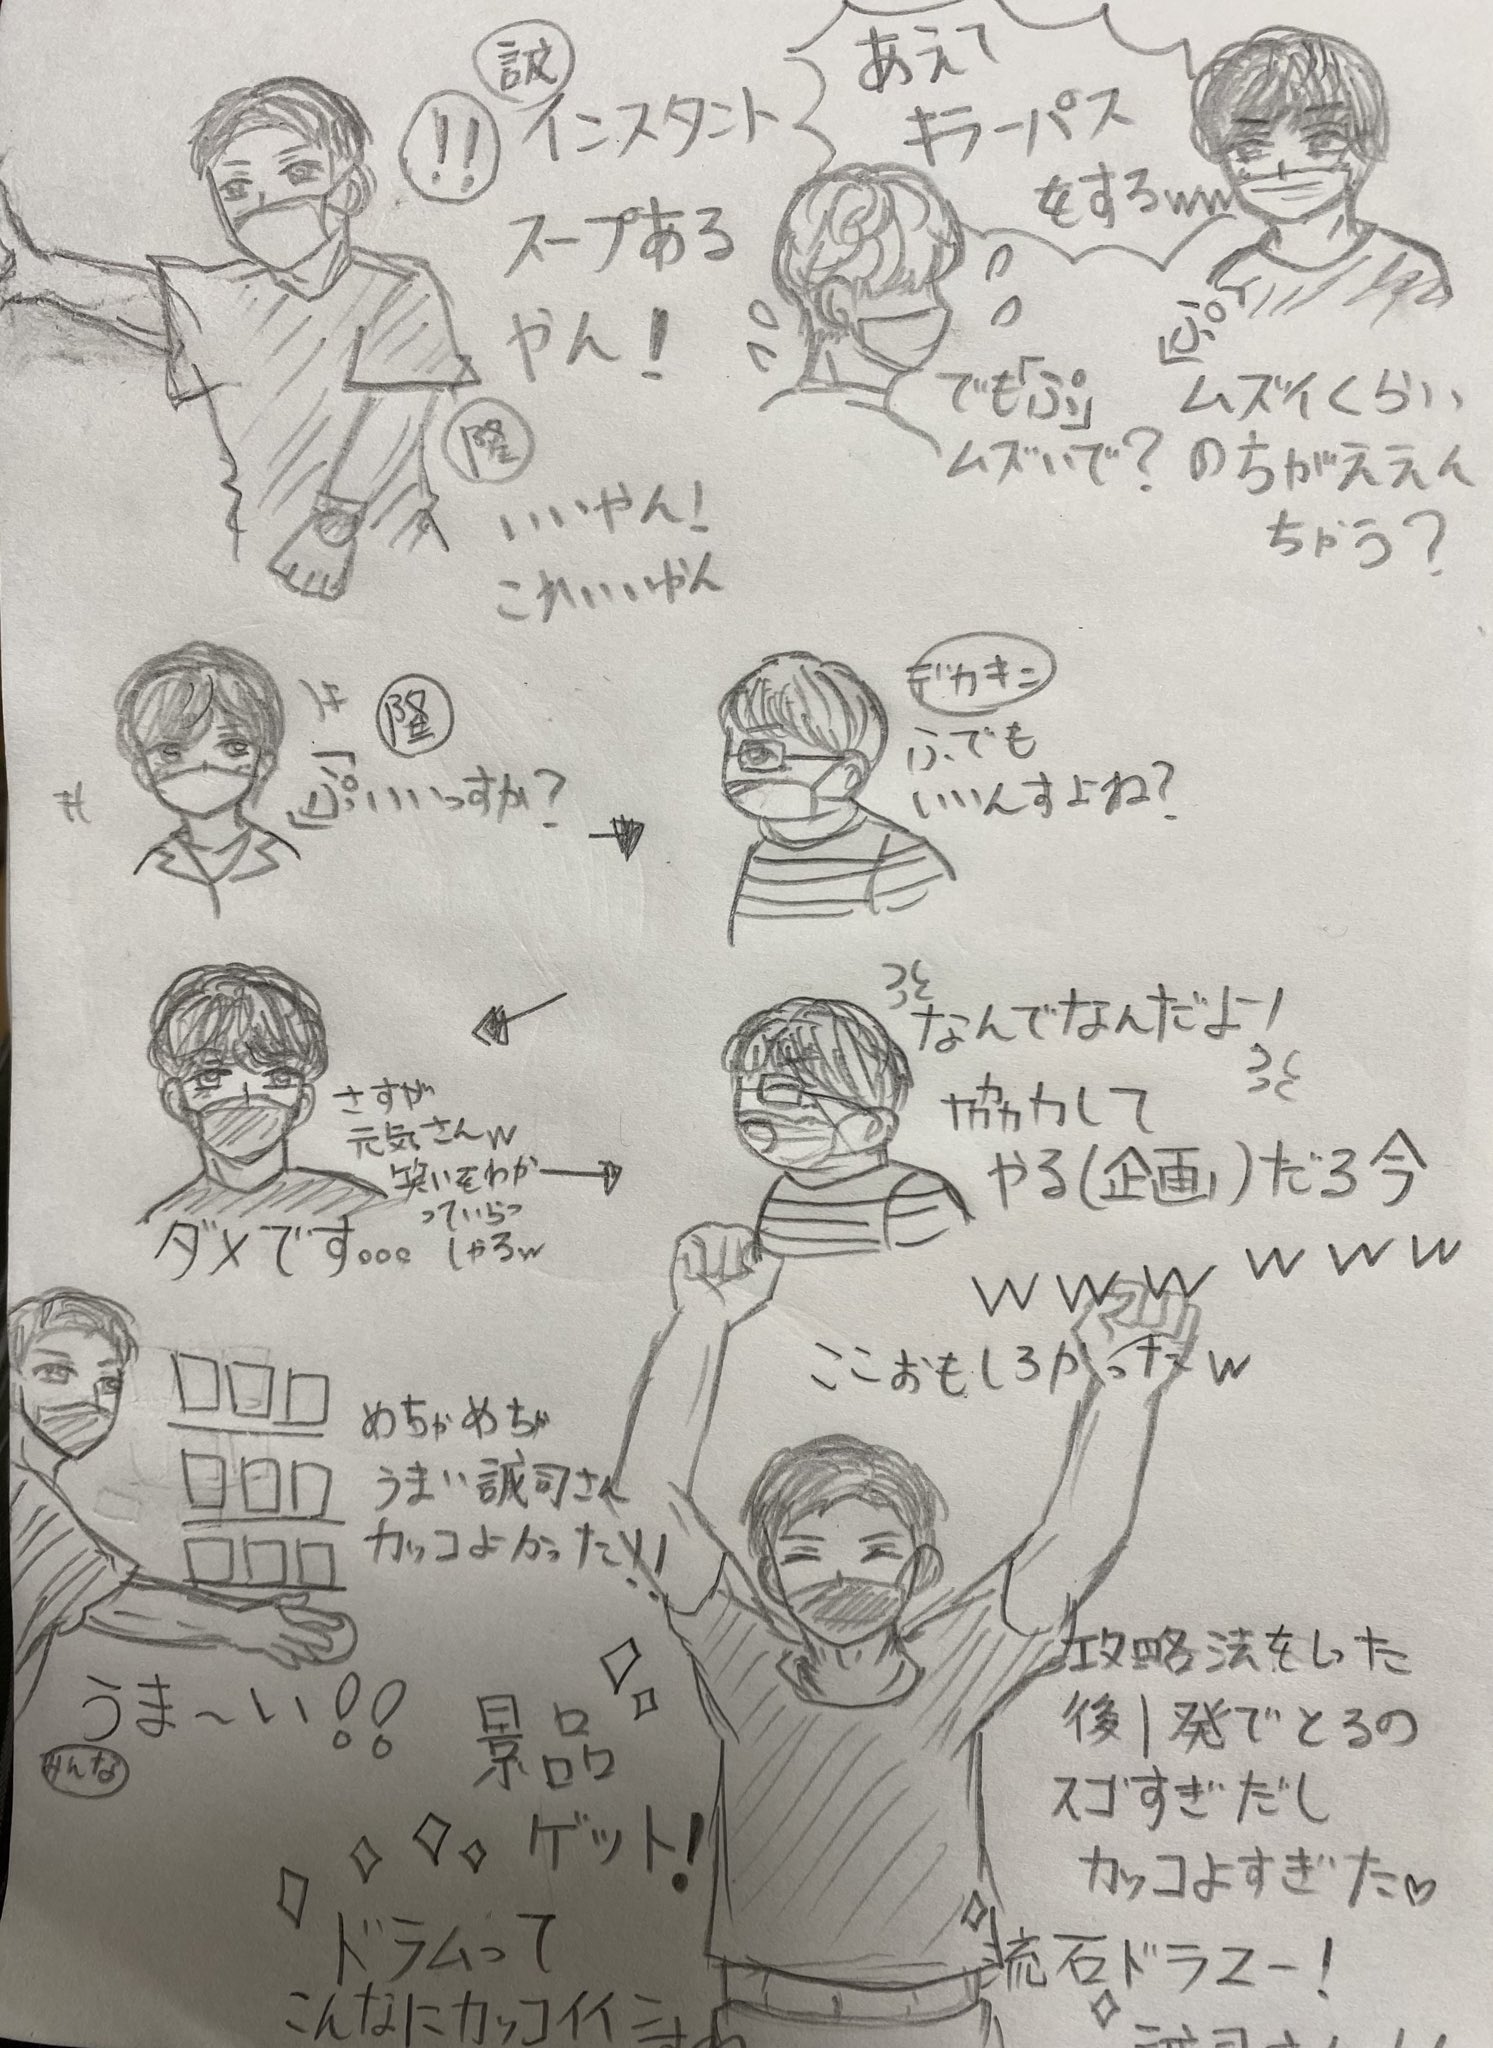 誠
!!
インスタント
スープある
やん!
隆
いいやん!
これいいやん
あえて
キラーパス
をするww
でも「ぷ」
ムズいで?
「ぷ」
ムズイくらい
のちがええん
ちゃう?
キ
キ
隆
「ぷ」いいっすか?
デカキン
ふでも
いいんすよね?
さすが
元気さんw
笑いをわか
っていらっ
しゃるw
ダメです。。。
なんでなんだよー!
協力して
やる(企画)だろ今
wwwwww
ここおもしろかったw
めちゃめちゃ
うまい誠司さん
カッコよかった!!
うま〜い!!
みんな
景品
ゲット!
ドラムって
こんなにカッコイイ
攻略法をした
後1発でとるの
スゴすぎだし
カッコよすぎた♡
流石ドラマー!